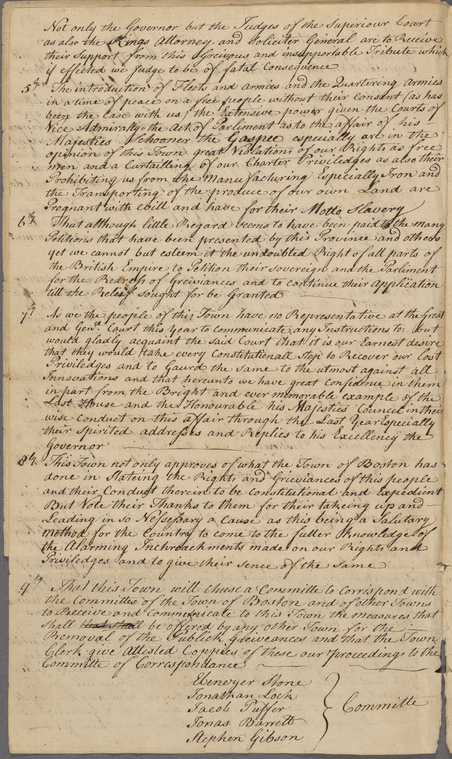 Not only the Governor but the Judges of the Superiour Court
as also the Kings Attorney and Soliciter General are to Receive
their Support from this Greivous and insupportable Tribute which
if effected we judge to be of fatal Consequence
5ly The introduction of Fleets and armies and the Quartering Armies
in a time of peace on a free people without their Consent (as has
been the case with us) the Extensive power given the Courts of
Vice Admiralty the Act of Parliment as to the affair of his
Majesties Schooner the Gaspee especially are in the
opinion of this Town great Violations of our Rights as free
men and a Curtailing of our Charter Priviledges as also their
Prohibiting us from the Manufacturing Especially Iron and
the Transporting of the produce of our own Land are
Pregnant with evill and have for their Motto Slavery
6ly That although little Regard seems to have been paid to the many
Petitions that have been presented by this Province and others
yet we cannot but esteem it the undoubted Right of all parts of
the British Empire to Petition their Sovereign and the Parliment
for the Redress of Greivances and to continue their Application
till the Relief Sought for be Granted
7ly As we the people of this Town have no Representative at the Great
and Genll Court this Year to communicate any Instructions to: but
would gladly acquaint the said Court that it is our Earnest desire
that they would take every Constitutionall Step to Recover our Lost
Priviledges and to Gaurd the same to the utmost against all
Innovations and that hereunto we have great Confidence in them
in part from the Bright and ever memorable example of the
Last House and the Honourable his Majesties Council in their
wise Conduct on this affair through the Last Year especially
their Spirited addresses and Replies to his Excellency the
Governor
8ly This Town not only approves of what the Town of Boston has
done in Stateing the Rights and Grieviances of this people
and their Conduct therein to be Constitutional and expedient
But Vote their Thanks to them for their takeing up and
Leading in so Nessessary a Cause as this being a Salutary
method for the Country to come to the fuller Knowledge of
the Alarming Inchroachments made on our Rights and
Priviledges and to give their Sence of the Same
9ly That this Town will chuse a Committe to Corrispond with
the Committee of the Town of Boston and of other Towns
to Receive and Communicate to this Town the measures that
shall that shall be offered by any other Town for the
Removal of the Publick Grieveances and that the Town
Clerk give Attested Coppies of these our Proceedings to the
Committe of Correspondance
Ebenezer Stone
Jonathan Lock
Jacob Puffer
Jonas Barrett
Stephen Gibson
Committe